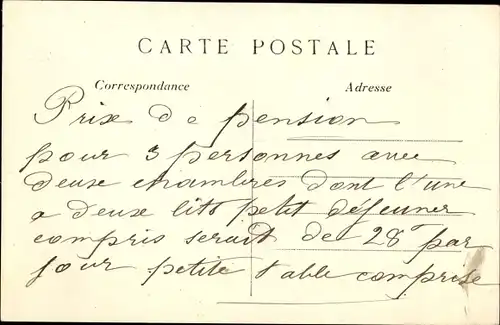 CARTE POSTALE
Correspondance Adresse
Prix de pension
pour 3 personnes avec
deux chambres dont l'une
a deux lits petit déjeuner
compris serait de 28 par
jour petite table comprise